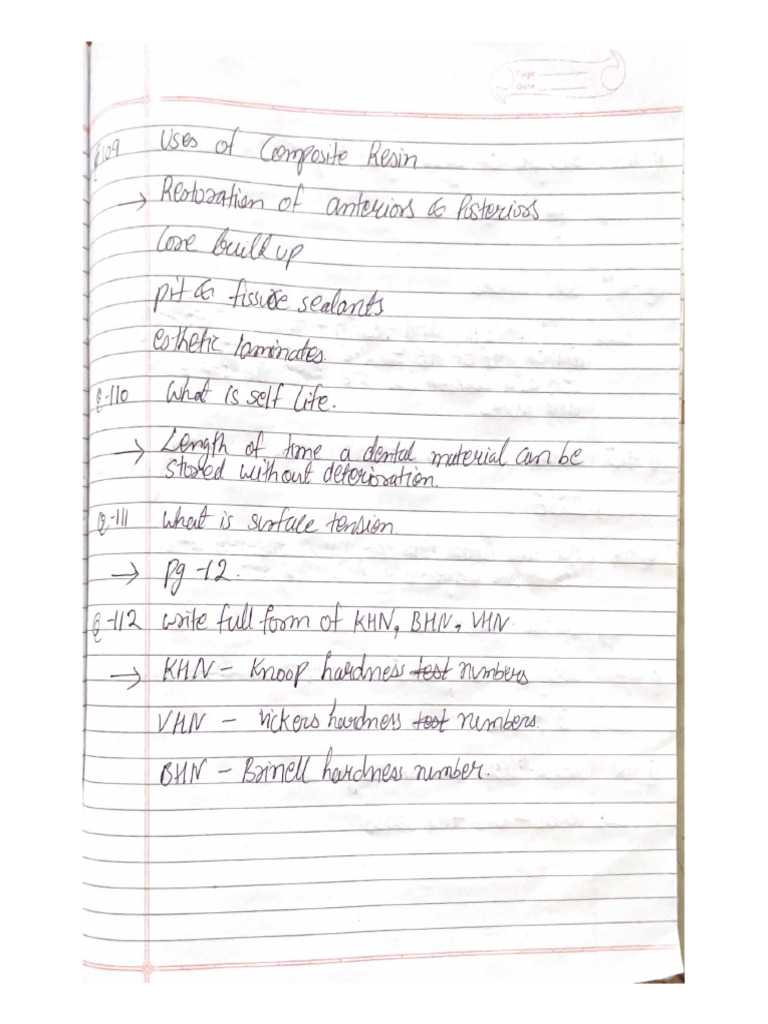 Page
Date
Q-109 Uses of Composite Resin
→ Restoration of anteriors & Posteriors
Core build up
pit & fissure sealants
esthetic laminates.
Q-110 What is self life.
→ Length of time a dental material can be
stored without deterioration.
Q-111 what is surface tension
→ Pg-12.
Q-112 write full form of KHN, BHN, VHN
→ KHN - Knoop hardness test numbers
VHN - Vickers hardness test numbers.
BHN - Brinell hardness number.